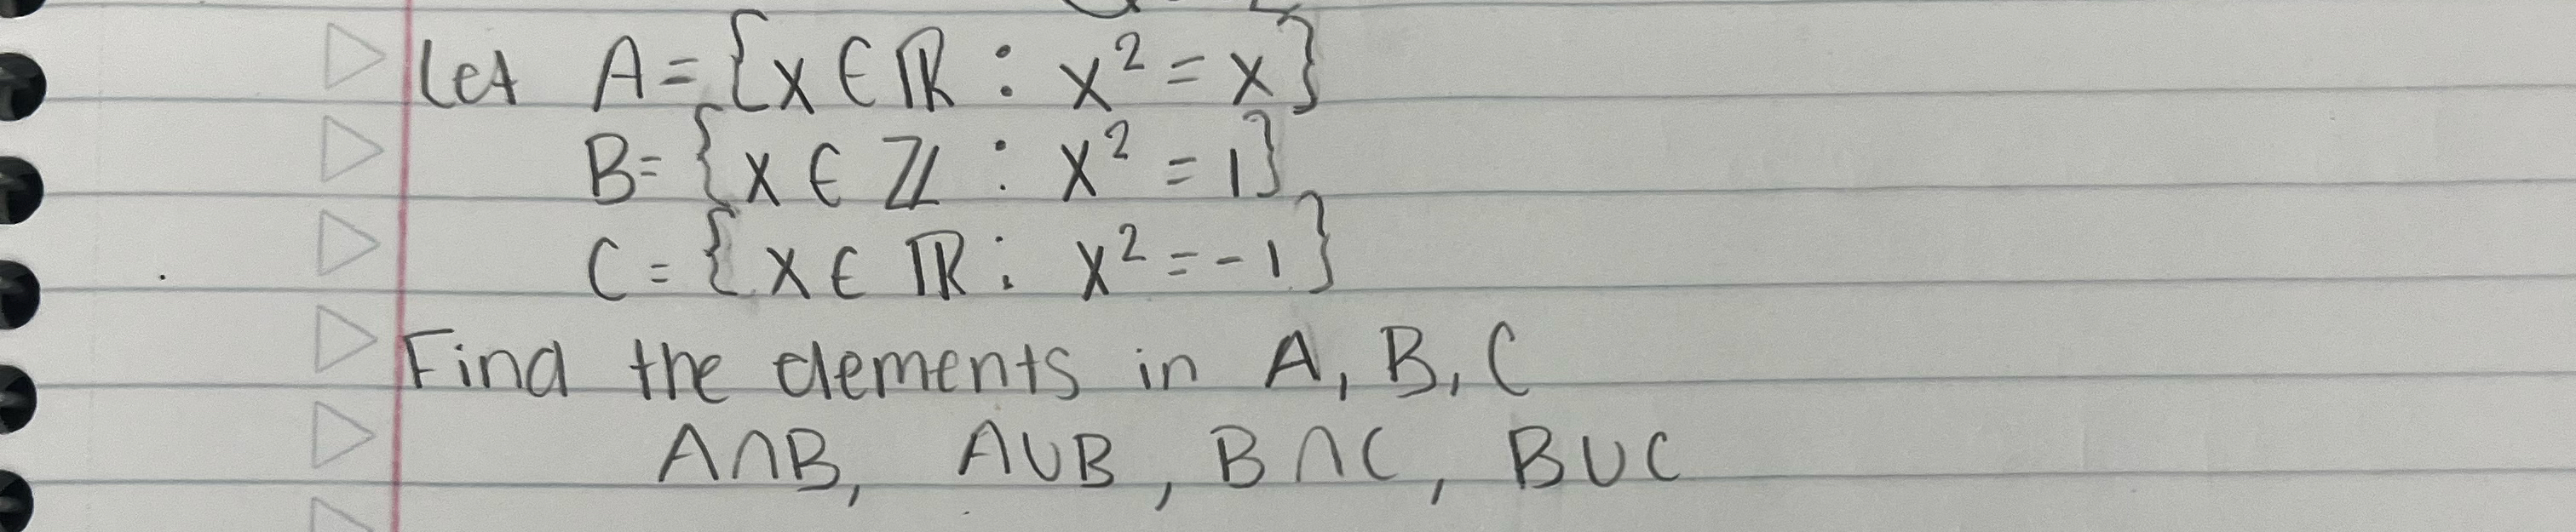 Let A = {x ∈ ℝ : x² = x}
B = {x ∈ ℤ : x² = 1}
C = {x ∈ ℝ : x² = -1}
Find the elements in A, B, C
A∩B, A∪B, B∩C, B∪C